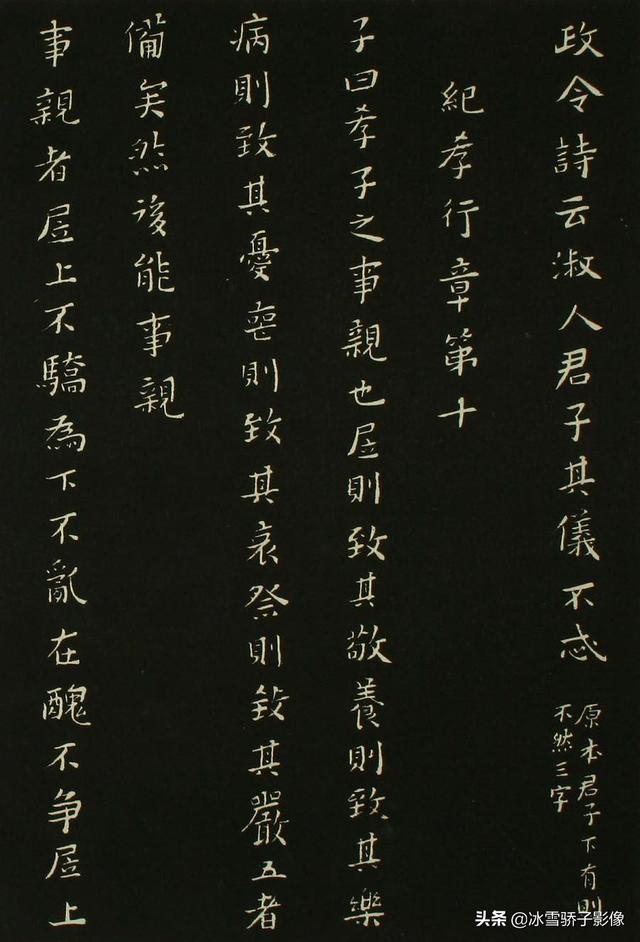 政令詩云淑人君子其儀不忒
原本君子下有則
不然三字
紀孝行章第十
子曰孝子之事親也居則致其敬養則致其樂
病則致其憂喪則致其哀祭則致其嚴五者
備矣然後能事親
事親者居上不驕為下不亂在醜不争居上
头条 @冰雪骄子影像